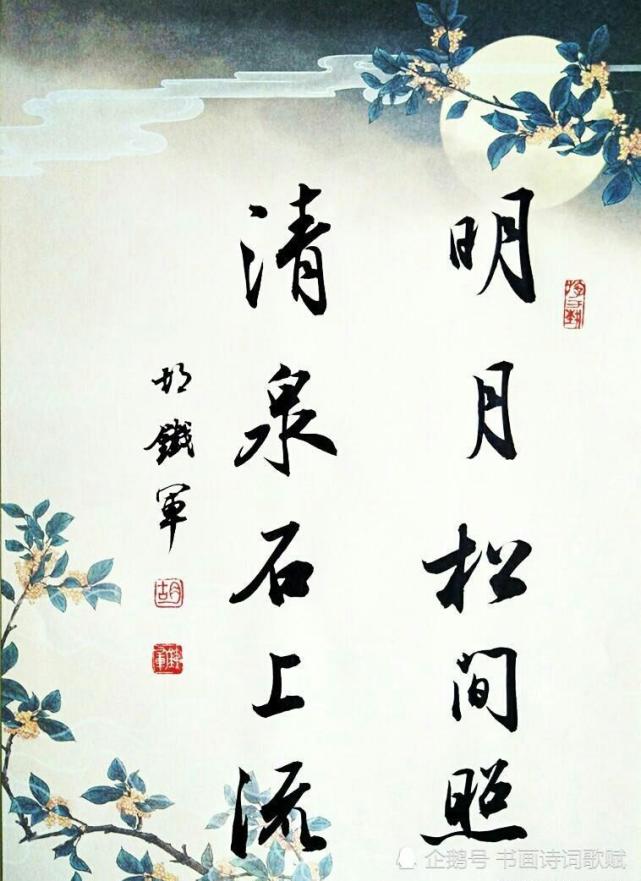 明月松间照
清泉石上流
胡鐵軍
企鹅号 书画诗词歌赋